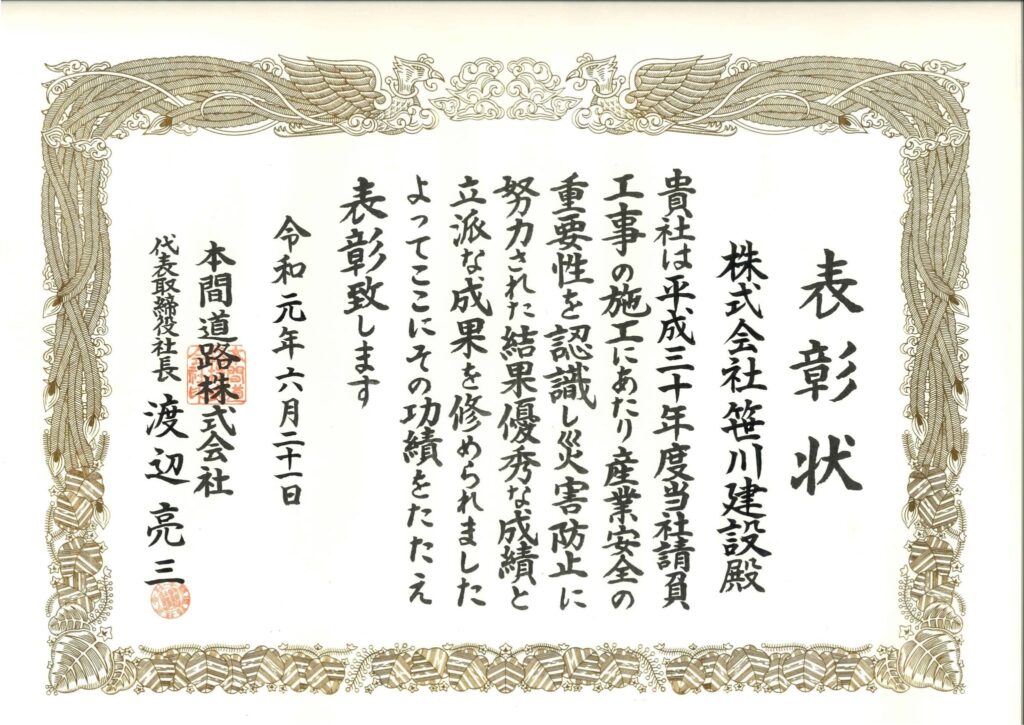 表彰状
株式会社笹川建設殿
貴社は平成三十年度当社請負
工事の施工にあたり産業安全の
重要性を認識し災害防止に
努力された結果優秀な成績と
立派な成果を修められました
よってここにその功績をたたえ
表彰致します
令和元年六月二十一日
本間道路株式会社
代表取締役社長 渡辺亮三